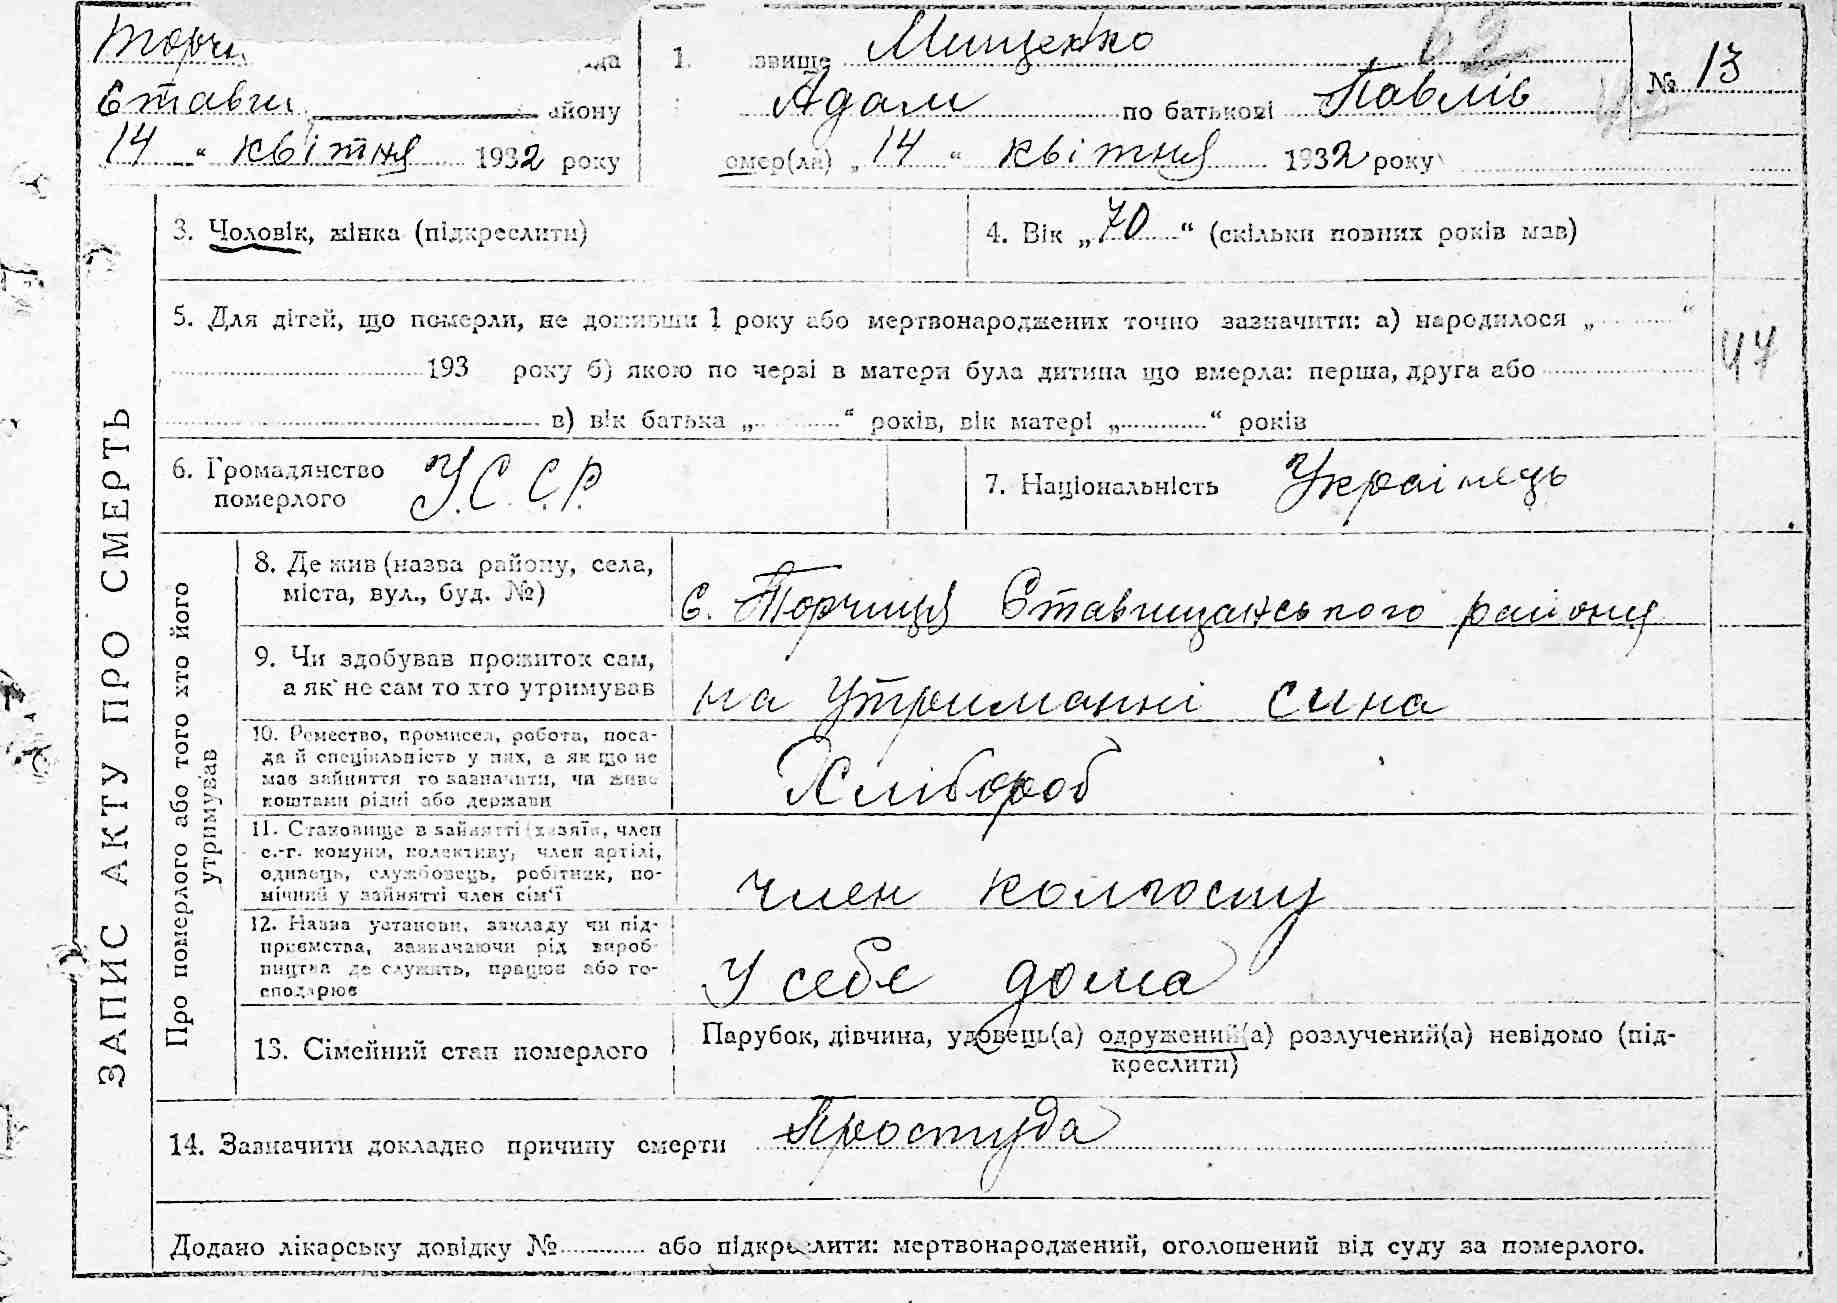 Торчи ада 1. звище Мищенко 62 № 13
Ставищ айону Адам по батькові Павлів
14 " квітня 1932 року омер(ла) „ 14 " квітня 1932 року
ЗАПИС АКТУ ПРО СМЕРТЬ
3. Чоловік, жінка (підкреслити) 4. Вік „ 70 " (скільки повних років мав)
5. Для дітей, що померли, не доживши 1 року або мертвонароджених точно зазначити: а) народилося „ "
193 року б) якою по черзі в матери була дитина що вмерла: перша, друга або
44
в) вік батька „ " років, вік матері „ " років
6. Громадянство
померлого У.С.С.Р. 7. Національність Українець
Про померлого або того хто його
утримував
8. Де жив (назва району, села,
міста, вул., буд. №) с. Торчиця Ставищанського району
9. Чи здобував прожиток сам,
а як не сам то хто утримував на утриманні сина
10. Ремество, промисел, робота, поса-
да й спеціяльність у них, а як що не
мав зайняття то зазначити, чи живе
коштами рідні або держави Хлібороб
11. Становище в зайнятті (хазяїн, член
с.-г. комуни, колективу, член артілі,
одинець, службовець, робітник, по-
мічний у зайнятті член сім'ї член колгоспу
12. Назва установи, закладу чи під-
приємства, зазначаючи рід вироб-
ництва де служить, працює або го-
сподарює у себе дома
13. Сімейний стан померлого Парубок, дівчина, удовець(а) одружений(а) розлучений(а) невідомо (під-
креслити)
14. Зазначити докладно причину смерти Простуда
Додано лікарську довідку № або підкреслити: мертвонароджений, оголошений від суду за померлого.